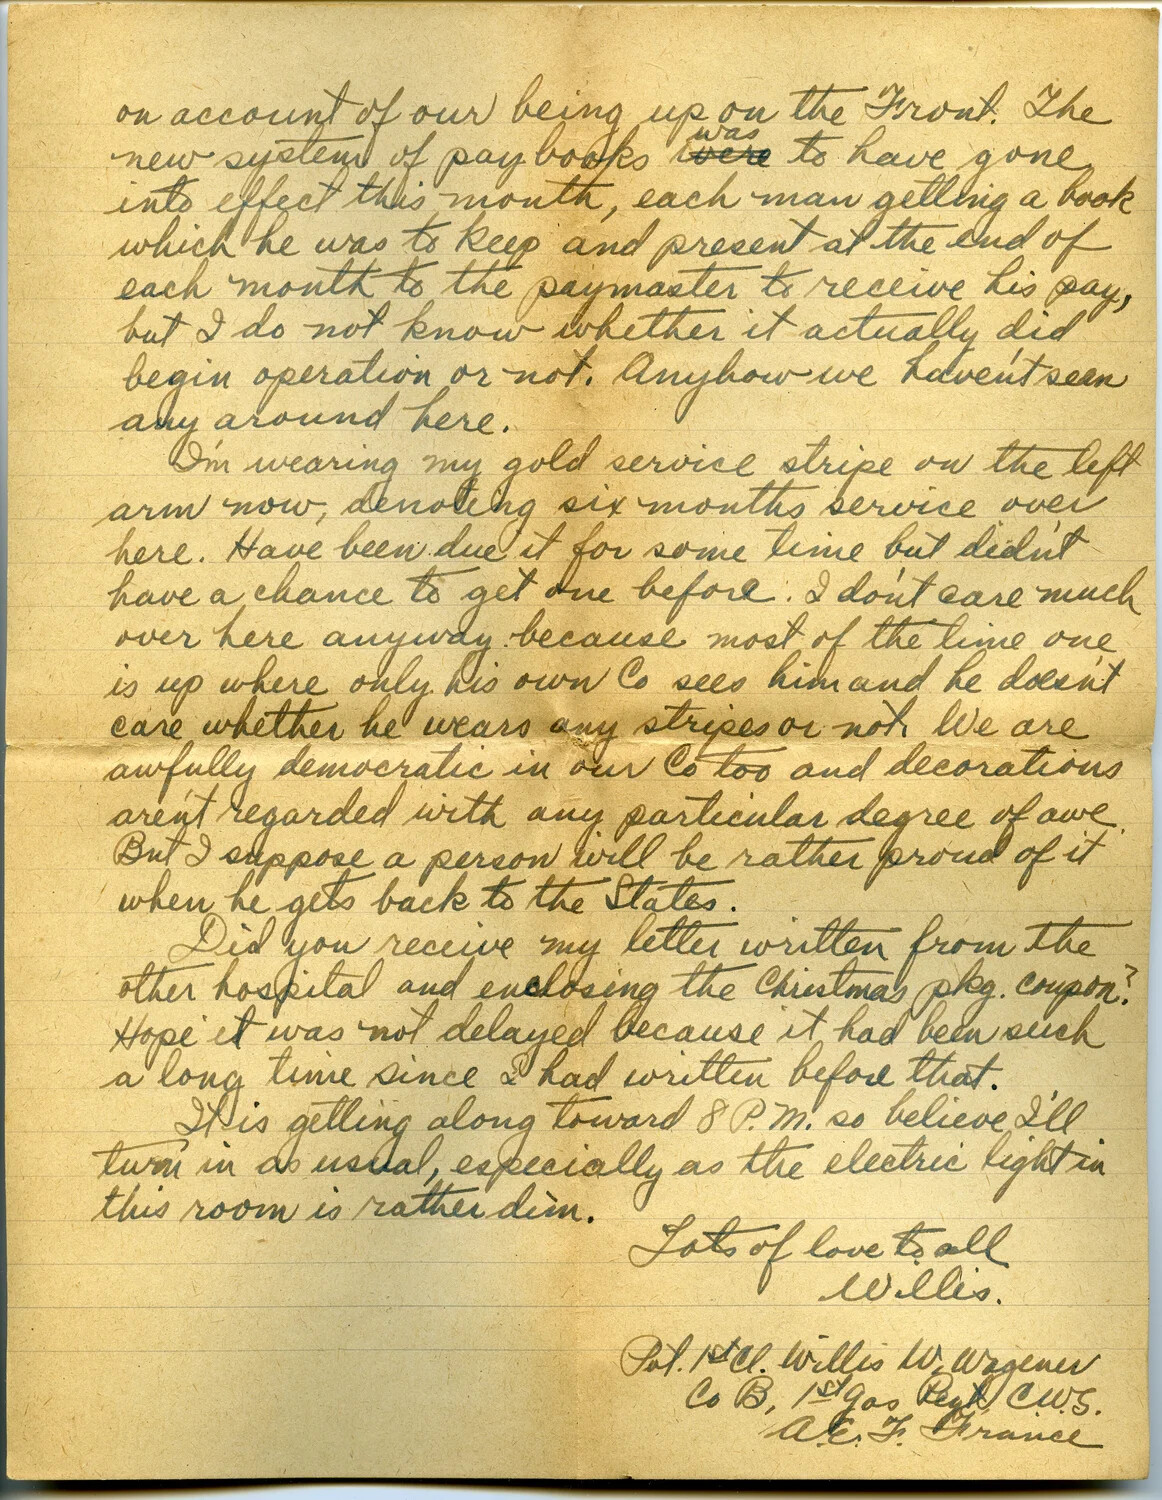 on account of our being up on the Front. The
new system of paybooks was were to have gone
into effect this month, each man getting a book
which he was to keep and present at the end of
each month to the paymaster to receive his pay,
but I do not know whether it actually did
begin operation or not. Anyhow we haven't seen
any around here.
I'm wearing my gold service stripe on the left
arm now, denoting six months service over
here. Have been due it for some time but didn't
have a chance to get one before. I don't care much
over here anyway because most of the time one
is up where only his own Co sees him and he doesn't
care whether he wears any stripes or not. We are
awfully democratic in our Co too and decorations
aren't regarded with any particular degree of awe.
But I suppose a person will be rather proud of it
when he gets back to the States.
Did you receive my letter written from the
other hospital and enclosing the Christmas pkg. coupon?
Hope it was not delayed because it had been such
a long time since I had written before that.
It is getting along toward 8 P.M. so believe I'll
turn in as usual, especially as the electric light in
this room is rather dim.
Lots of love to all
Willis.
Pvt. 1st Cl. Willis W. Wagener
Co B, 1st Gas Regt, C.W.S.
A.E.F. France